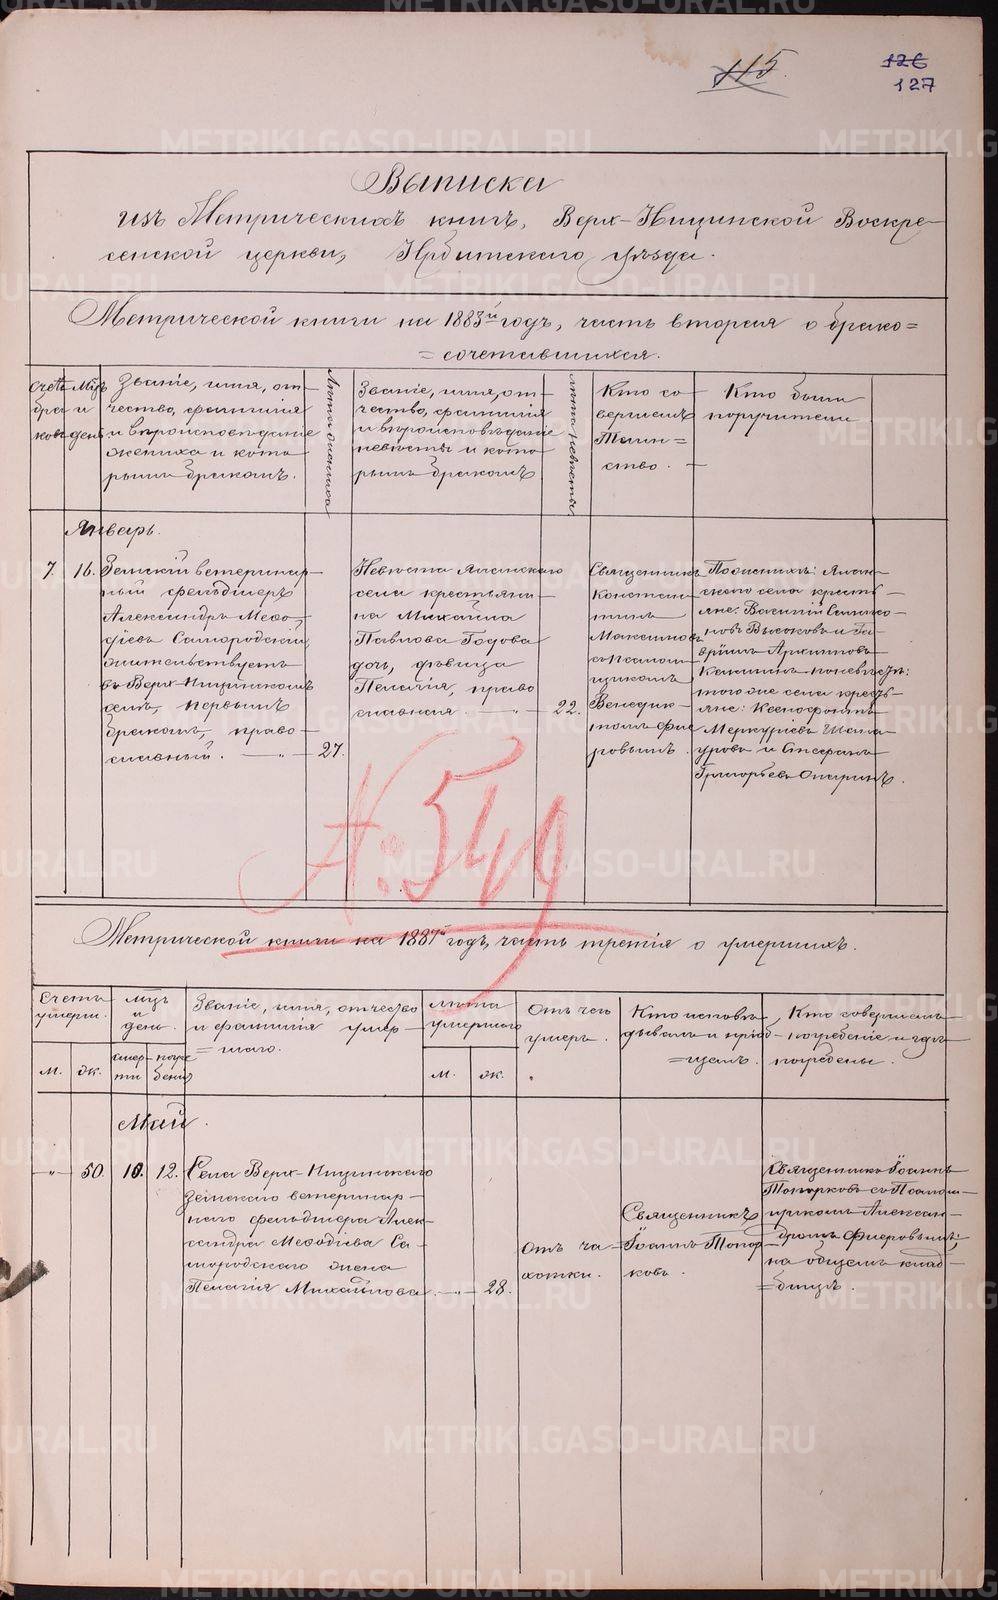 115.
126
127
Выписка
изъ Метрическихъ книгъ, Верх-Ницинской Воскре-
сенской церкви, Ирбитскаго уѣзда.
Метрической книги на 1883й годъ, часть вторая о брако=
=сочетавшихся.
Счетъ
бра
ковъ
Мцъ
и
день
Званіе, имя, от-
чество, фамилія
и вѣроисповѣданіе
жениха и кото-
рымъ бракомъ.
Лѣта жениха
Званіе, имя, от-
чество, фамилія
и вѣроисповѣданіе
невѣсты и кото-
рымъ бракомъ
лѣта невѣсты
Кто со-
вершилъ
Таин=
ство.
Кто были
поручители
Январь.
7. 16.
Земскій ветеринар-
ный фельдшеръ
Александръ Меѳо-
діевъ Самородскій,
жительствуетъ
въ Верх-Ницинскомъ
селѣ, первымъ
бракомъ, право-
славный. — „ — 27.
Невѣста
села крестьяни-
на Михаила
Павлова Годова
дочь, дѣвица
Пелагія, право
славная. — „ — 22.
Священникъ
Констан-
тинъ
Максимовъ
съ псалом-
щикомъ
Венедик-
томъ Фле
ровымъ.
По женихѣ:
скаго села кресть-
яне: Василій
новъ Высоковъ и Га-
вріилъ Архиповъ
по невѣстѣ:
того же села кресть-
яне: Ксенофонтъ
Меркуріевъ
и Стефанъ
Григорьевъ Опаринъ.
№ 549
Метрической книги на 1887й годъ, часть третія о умершихъ.
Счетъ
умерш.
м. ж.
мцъ
и
день.
смер-
ти
погре
бенія
Званіе, имя, отчество
и фамилія умер-
=шаго.
лѣта
умершаго
м. ж.
Отъ чего
умеръ.
Кто исповѣ-
дывалъ и пріоб-
=щалъ.
Кто совершалъ
погребеніе и гдѣ
погребены.
Май.
— „ — 50. 10. 12.
Села Верх-Ницинскаго
земскаго ветеринар-
наго фельдшера Алек-
сандра Меѳодіева Са-
мородскаго жена
Пелагія Михайлова. — „ — 28.
Отъ ча-
хотки.
Священникъ
Іоаннъ Топор-
ковъ.
Священникъ Іоаннъ
Топорковъ съ Псалом-
щикомъ Алексан-
дромъ Флеровымъ,
на общемъ клад-
=бищѣ.
METRIKI.GASO-URAL.RU